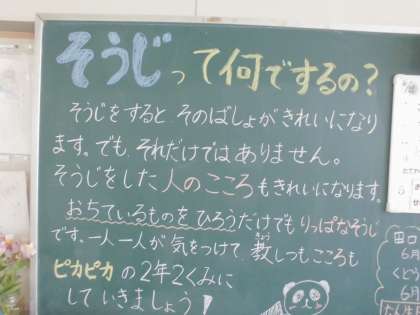 そうじって何でするの？
そうじをすると、そのばしょがきれいになり
ます。でも、それだけではありません。
そうじをした人のこころもきれいになります。
おちているものをひろうだけでもりっぱなそうじ
です。一人一人が気をつけて、教しつもこころも
ピカピカの2年2くみに
していきましょう!
田口
6月
くどう
6月